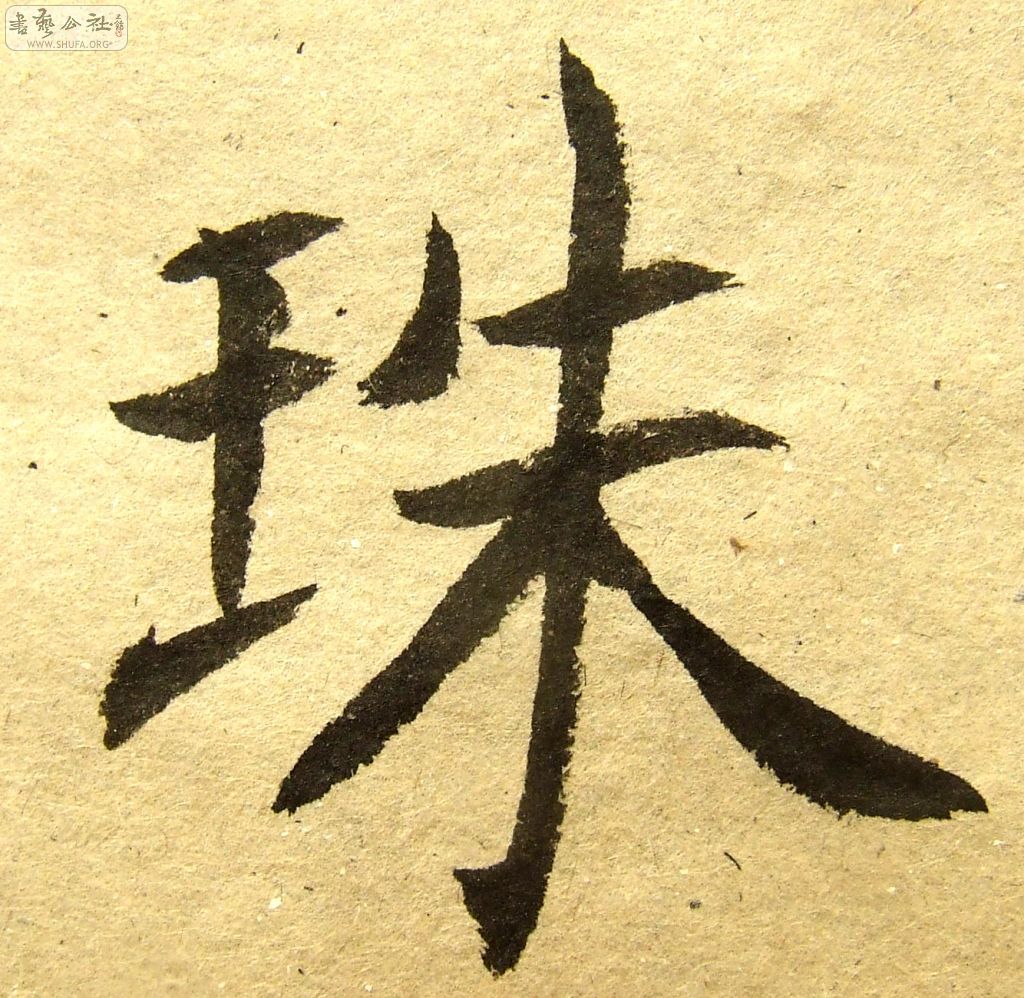 書藝公社
WWW.SHUFA.ORG
珠